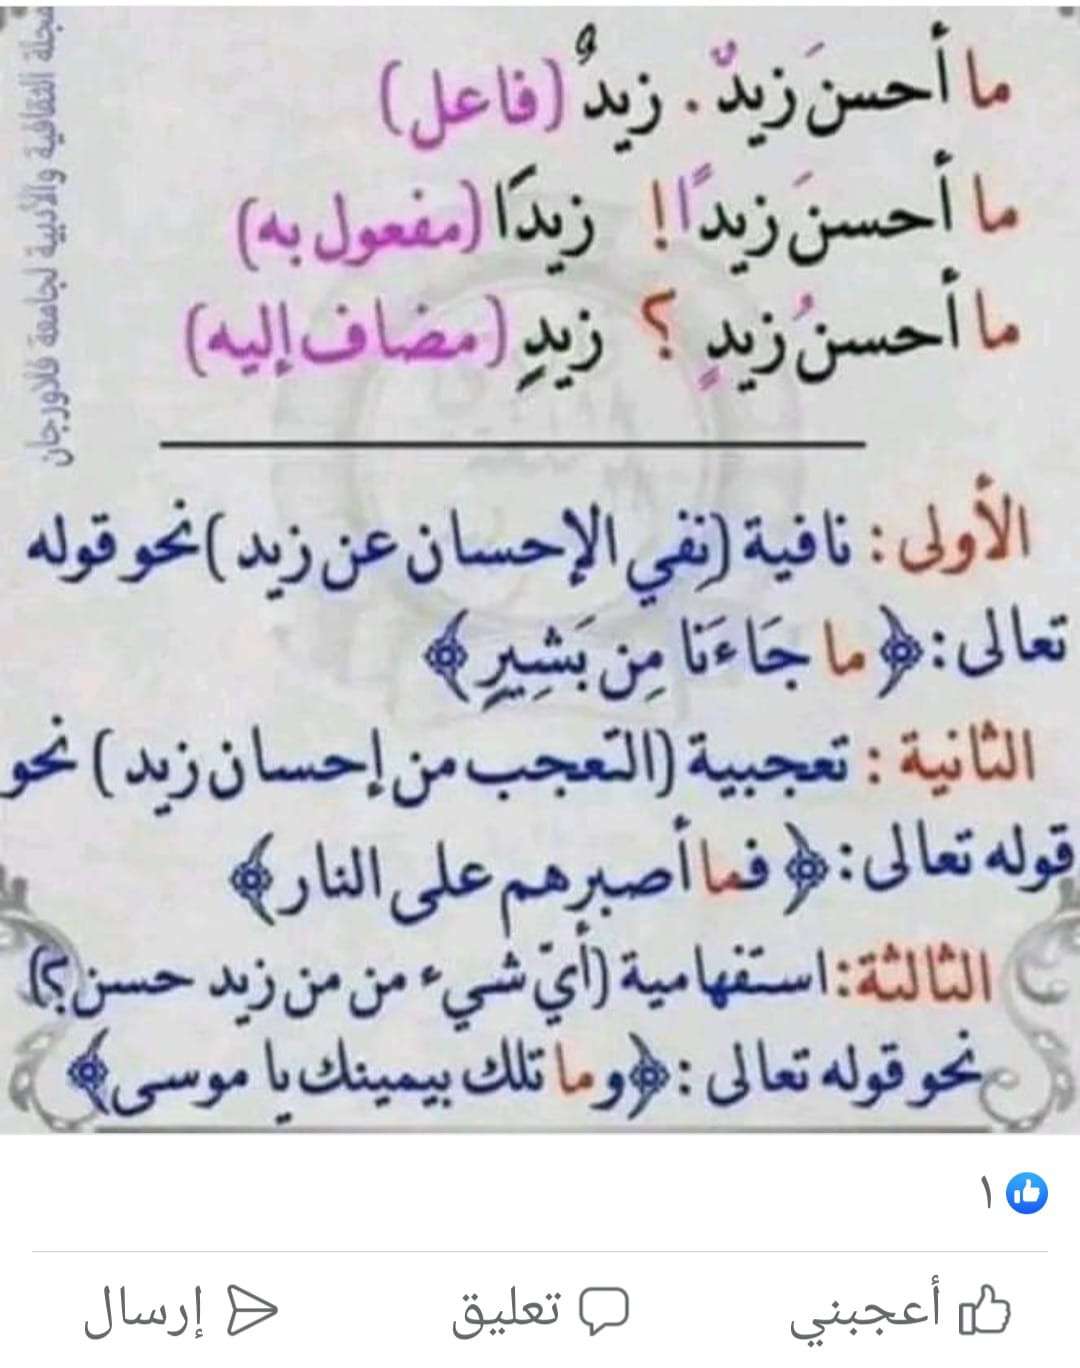 ما أحسنَ زيدٌ . زيدٌ (فاعل)
ما أحسنَ زيدًا! زيدًا (مفعول به)
ما أحسنُ زيدٍ ؟ زيدٍ (مضاف إليه)
مجلة الثقافية والأدبية لجامعة فلاورجان
الأولى : نافية (نفي الإحسان عن زيد ) نحو قوله
تعالى : ﴿ ما جَاءَنَا مِن بَشِيرٍ ﴾
الثانية : تعجبية (التعجب من إحسان زيد ) نحو
قوله تعالى : ﴿ فما أصبرهم على النار ﴾
الثالثة: استفهامية (أيّ شيء من من زيد حسن ؟)
نحو قوله تعالى : ﴿ و ما تلك بيمينك يا موسى ﴾
١
أعجبني تعليق إرسال